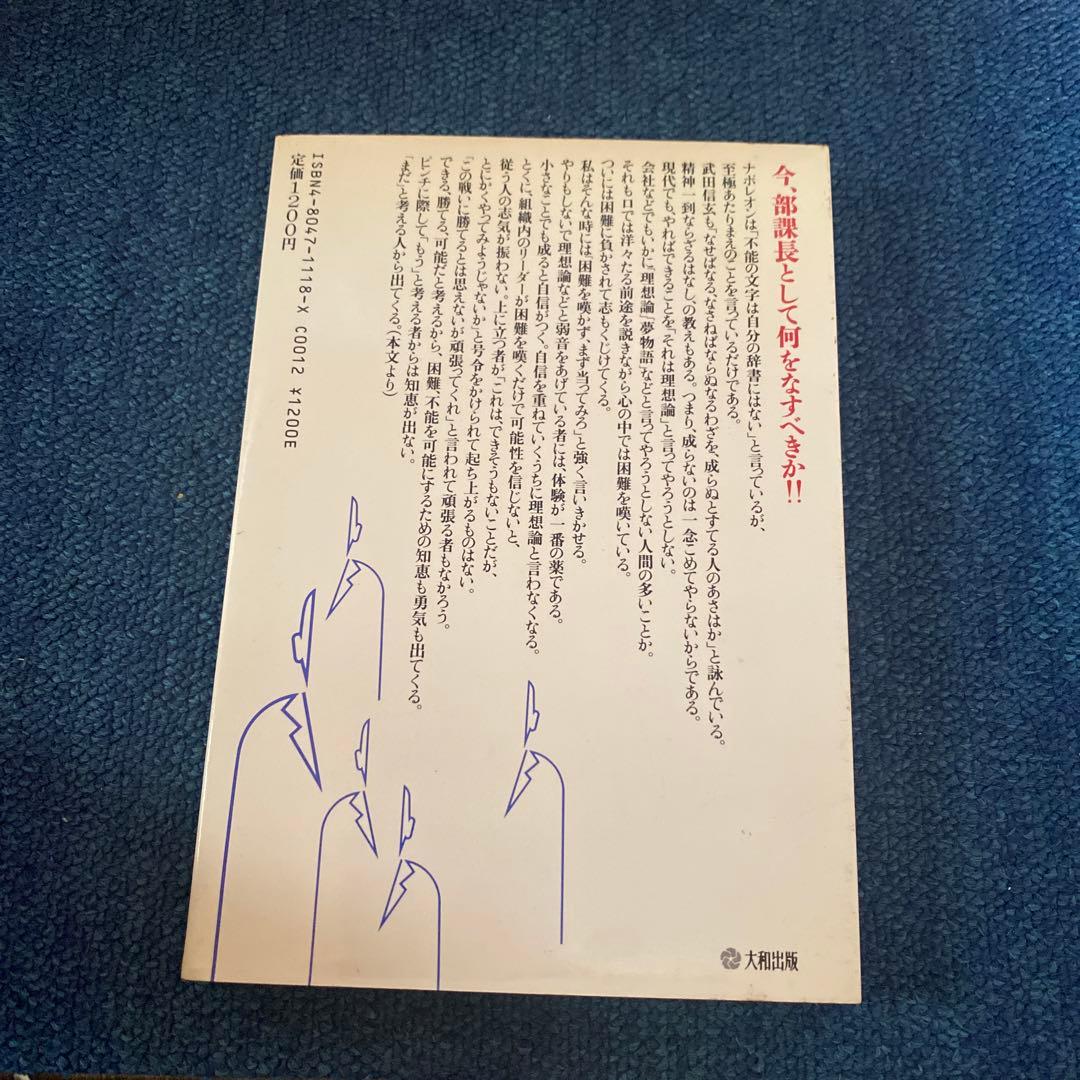 今、部課長として何をなすべきか!!
ナポレオンは「不能の文字は自分の辞書にはない」と言っているが、
至極あたりまえのことを言っているだけである。
武田信玄も「なせばなる、なさねばならぬなるわざを、成らぬとすてる人のあさはか」と詠んでいる。
精神一到ならざるはなし、の教えもある。つまり、成らないのは一念こめてやらないからである。
現代でも、やればできることを「それは理想論」と言ってやろうとしない。
会社などでもいかに「理想論」「夢物語」などと言ってやろうとしない人間の多いことか。
それも口では洋々たる前途を説きながら心の中では困難を嘆いている。
ついには困難に負かされて志もくじけてくる。
私はそんな時には「困難を嘆かず、まず当ってみろ」と強く言いきかせる。
やりもしないで理想論などと弱音をあげている者には、体験が一番の薬である。
小さなことでも成ると自信がつく。自信を重ねていくうちに理想論と言わなくなる。
とくに、組織内のリーダーが困難を嘆くだけで可能性を信じないと、
従う人の志気が振わない。上に立つ者が「これは、できそうもないことだが、
とにかくやってみようじゃないか」と号令をかけられて起ち上がるものはない。
「この戦いに勝てるとは思えないが頑張ってくれ」と言われて頑張る者もなかろう。
できる、勝てる、可能だと考えるから、困難、不能を可能にするための知恵も勇気も出てくる。
ピンチに際して「もう」と考える者からは知恵が出ない。
「まだ」と考える人から出てくる。(本文より)
ISBN4-8047-1118-X C0012 ¥1200E
定価1200円
大和出版